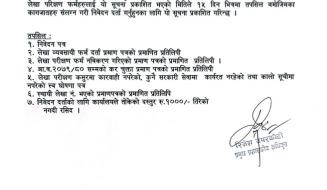 लेखा परिक्षण फर्महरुलाई यो सूचना प्रकाशित भएको मितिले १५ दिन भित्रमा तपसिल बमोजिमका
कागजातहरु संलग्न गरी निवेदन दर्ता गर्नुहुनका लागि यो सूचना प्रकाशित गरिन्छ ।
तपसिलः
१. निवेदन पत्र
२. लेखा व्यवसायी फर्म दर्ता प्रमाण पत्रको प्रमाणित प्रतिलिपि
३. लेखा परीक्षण फर्म नविकरण गरिएको प्रमाण पत्रको प्रमाणित प्रतिलिपी
४. आ.व.२०७९/८० सम्मको कर चुक्ता प्रमाण पत्रको प्रमाणित प्रतिलिपि
५. लेखा परीक्षण कसुरमा कारवाही नपरेको, कुनै सरकारी सेवामा कार्यरत नरहेको तथा कालो सूचीमा
नपरेको स्व घोषणा पत्र
६. स्थायी लेखा नं. भएको प्रमाणपत्रको प्रमाणित प्रतिलिपि
७. निवेदन दर्ताका लागि कार्यालयले तोकेको दस्तुर रु.१०००/- तिरेको
नगदी रसिद ।
प्रमुख प्रशासकीय अधिकृत